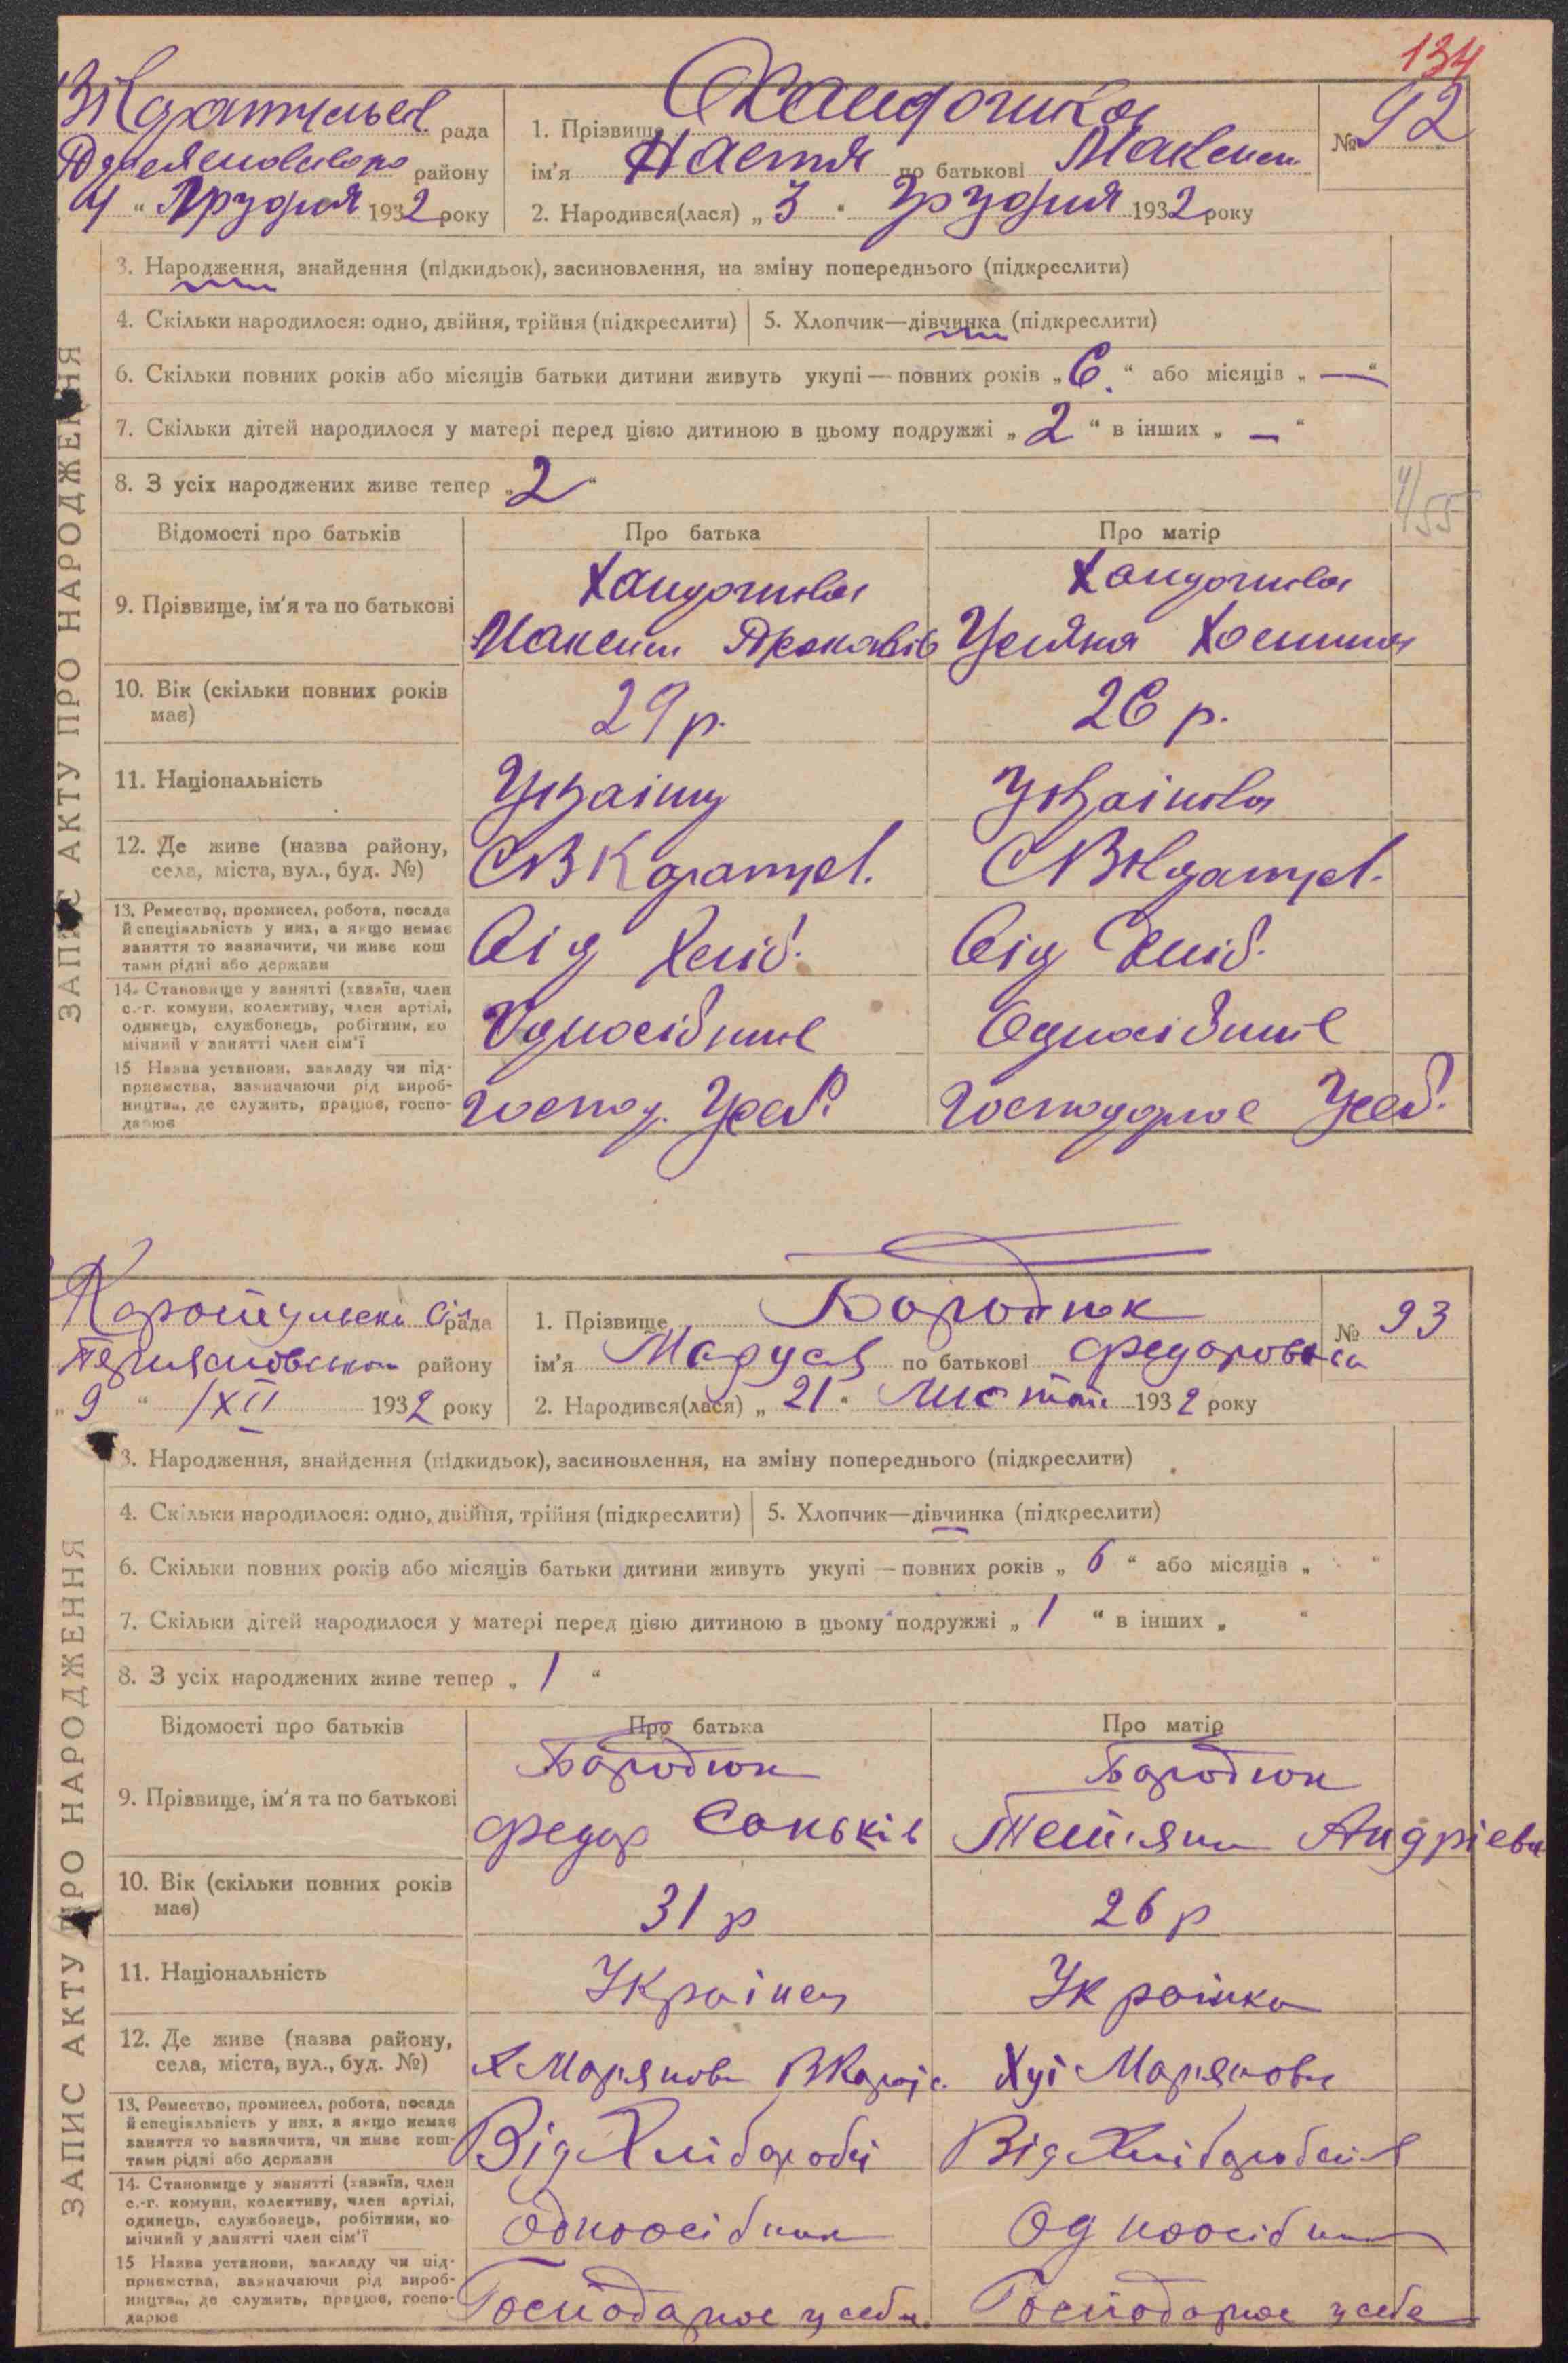 134
рада
1. Прізвище
№ 92
району
ім'я Настя по батькові Максим
4 " Грудня 1932 року
2. Народився(лася) „ 3 " Грудня 1932 року
3. Народження, знайдення (підкидьок), засиновлення, на зміну попереднього (підкреслити)
4. Скільки народилося: одно, двійня, трійня (підкреслити)
5. Хлопчик—дівчинка (підкреслити)
6. Скільки повних років або місяців батьки дитини живуть укупі — повних років „ 6 " або місяців „ — "
7. Скільки дітей народилося у матері перед цією дитиною в цьому подружжі „ 2 " в інших „ — "
8. З усіх народжених живе тепер „ 2 "
4/55
Відомості про батьків
Про батька
Про матір
9. Прізвище, ім'я та по батькові
Максим
10. Вік (скільки повних років
має)
29 р.
26 р.
11. Національність
12. Де живе (назва району,
села, міста, вул., буд. №)
13. Ремество, промисел, робота, посада
й спеціяльність у них, а якщо немає
заняття то зазначити, чи живе кош
тами рідні або держави
Від Хліб.
Від Хліб.
14. Становище у занятті (хазяїн, член
с.-г. комуни, колективу, член артілі,
одинець, службовець, робітник, по
мічний у занятті член сім'ї
15 Назва установи, закладу чи під-
приємства, зазначаючи рід вироб-
ництва, де служить, працює, госпо-
дарює
Господ. Усеб.
Господарює Усеб.
ЗАПИС АКТУ ПРО НАРОДЖЕННЯ
рада
1. Прізвище Бародюк
№ 93
району
ім'я Маруся по батькові Федоровна
„ 9 " /XII 1932 року
2. Народився(лася) „ 21 " Листоп 1932 року
3. Народження, знайдення (підкидьок), засиновлення, на зміну попереднього (підкреслити)
4. Скільки народилося: одно, двійня, трійня (підкреслити)
5. Хлопчик—дівчинка (підкреслити)
6. Скільки повних років або місяців батьки дитини живуть укупі — повних років „ 6 " або місяців „ "
7. Скільки дітей народилося у матері перед цією дитиною в цьому подружжі „ 1 " в інших „ "
8. З усіх народжених живе тепер „ 1 "
Відомості про батьків
Про батька
Про матір
9. Прізвище, ім'я та по батькові
Бародюк
Федор Саньків
Бародюк
Тетяна Андріевн
10. Вік (скільки повних років
має)
31 р
26 р
11. Національність
Українец
Українка
12. Де живе (назва району,
села, міста, вул., буд. №)
Х Маряновк
Хут Маряновк
13. Ремество, промисел, робота, посада
й спеціяльність у них, а якщо немає
заняття то зазначити, чи живе кош-
тами рідні або держави
Від Хлібороб
Від Хлібороб
14. Становище у занятті (хазяїн, член
с.-г. комуни, колективу, член артілі,
одинець, службовець, робітник, по
мічний у занятті член сім'ї
Одноосібник
Одноосібник
15 Назва установи, закладу чи під-
приємства, зазначаючи рід вироб-
ництва, де служить, працює, госпо-
дарює
Господарює у себе
Господарює у себе
ЗАПИС АКТУ ПРО НАРОДЖЕННЯ